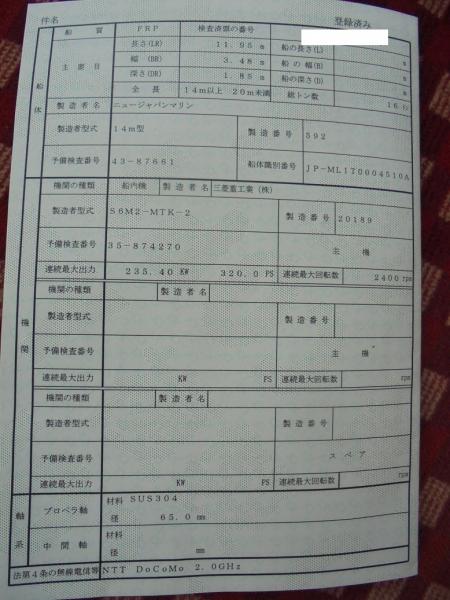 件名 登録済み
船体 船質 FRP 検査済票の番号
主要目 長さ(LR) 11.95 m 船の長さ(L) m
幅 (BR) 3.48 m 船の幅(B) m
深さ(DR) 1.85 m 船の深さ(D) m
全長 14m以上 20m未満 総トン数 16
製造者名 ニュージャパンマリン
製造者型式 14m型 製造番号 592
予備検査番号 43-87661 船体識別番号 JP-ML1T0004510A
機関 機関の種類 船内機 製造者名 三菱重工業(株)
製造者型式 S6M2-MTK-2 製造番号 20189
予備検査番号 35-874270 主機
連続最大出力 235.40 KW 320.0 PS 連続最大回転数 2400 rpm
機関の種類 製造者名
製造者型式 製造番号
予備検査番号 主機
連続最大出力 KW PS 連続最大回転数 rpm
機関の種類 製造者名
製造者型式 製造番号
予備検査番号 スペア
連続最大出力 KW PS 連続最大回転数 rpm
軸系 プロペラ軸 材料 SUS304
径 65.0 mm
中間軸 材料
径 mm
法第4条の無線電信等 NTT DoCoMo 2.0GHz